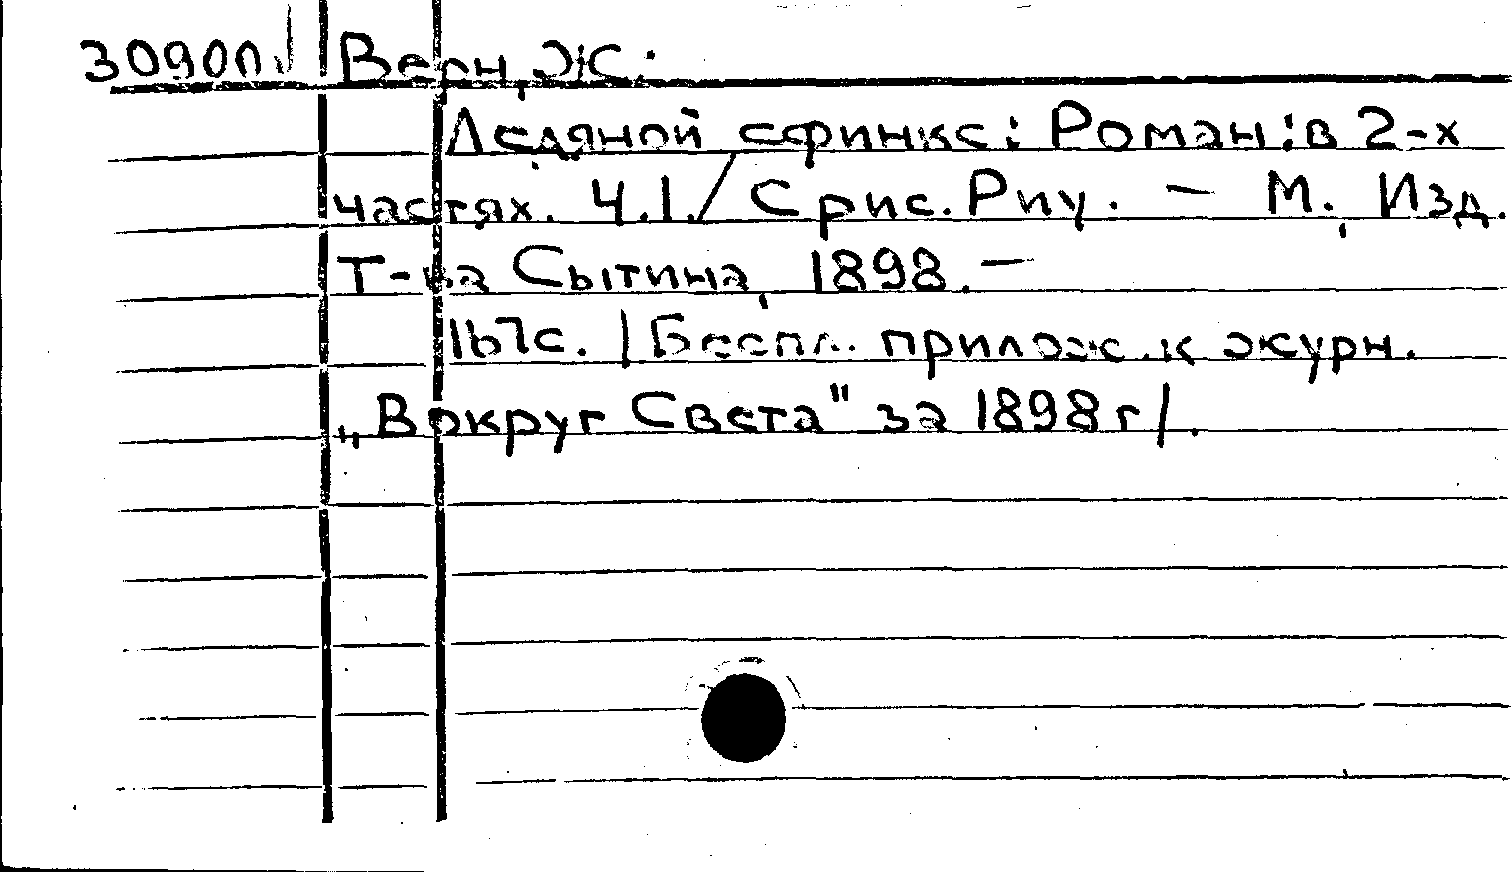 30900 Верн, Ж.
Ледяной сфинкс: Роман: в 2-х
частях. Ч.1./ С рис. Риу. — М., Изд.
Т-ва Сытина, 1898. —
167с. /Беспл. прилож. к журн.
„Вокруг Света" за 1898 г/.